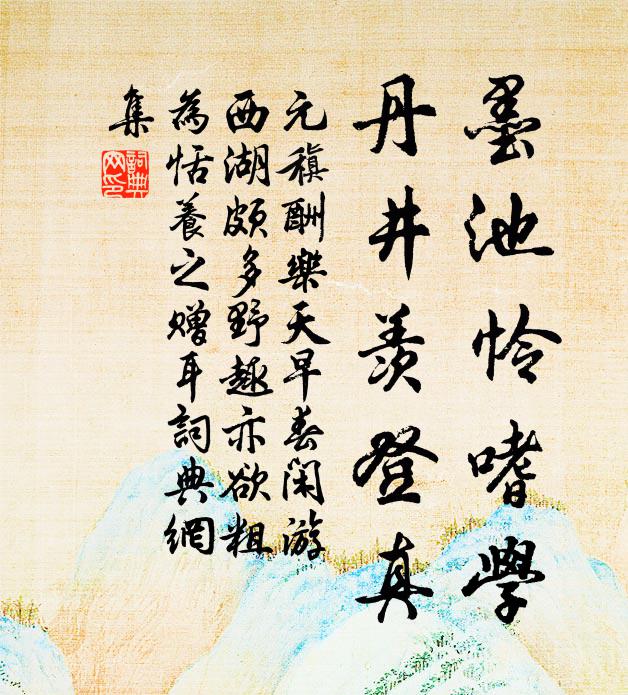 墨池怜嗜學
丹井羨登真
元稹酬樂天早春閑游
西湖頗多野趣亦欲粗
為恬養之贈耳詞典網
集
詞典
网印